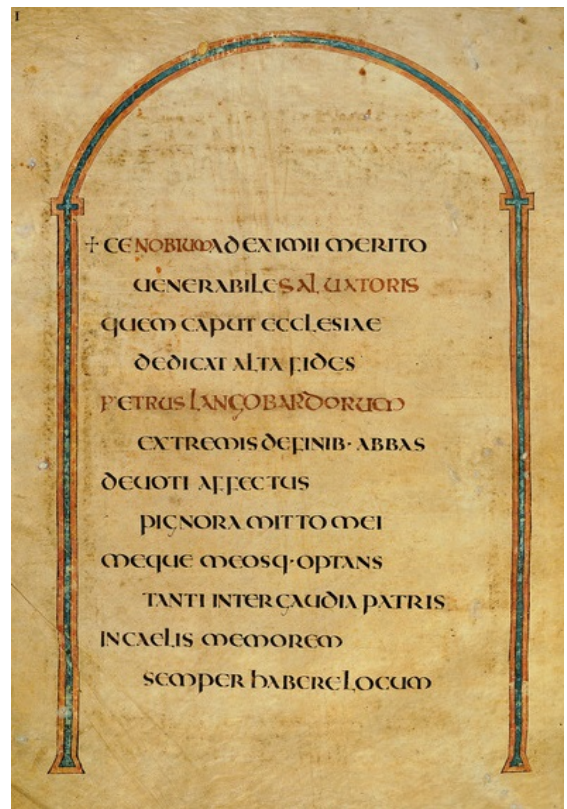 I
+ CENOBIUM AD EXIMII MERITO
UENERABILE SALUATORIS
QUEM CAPUT ECCLESIAE
DEDICAT ALTA FIDES
PETRUS LANGOBARDORUM
EXTREMIS DE FINIB· ABBAS
DEUOTI AFFECTUS
PIGNORA MITTO MEI
MEQUE MEOSQ· OPTANS
TANTI INTER GAUDIA PATRIS
IN CAELIS MEMOREM
SEMPER HABERE LOCUM